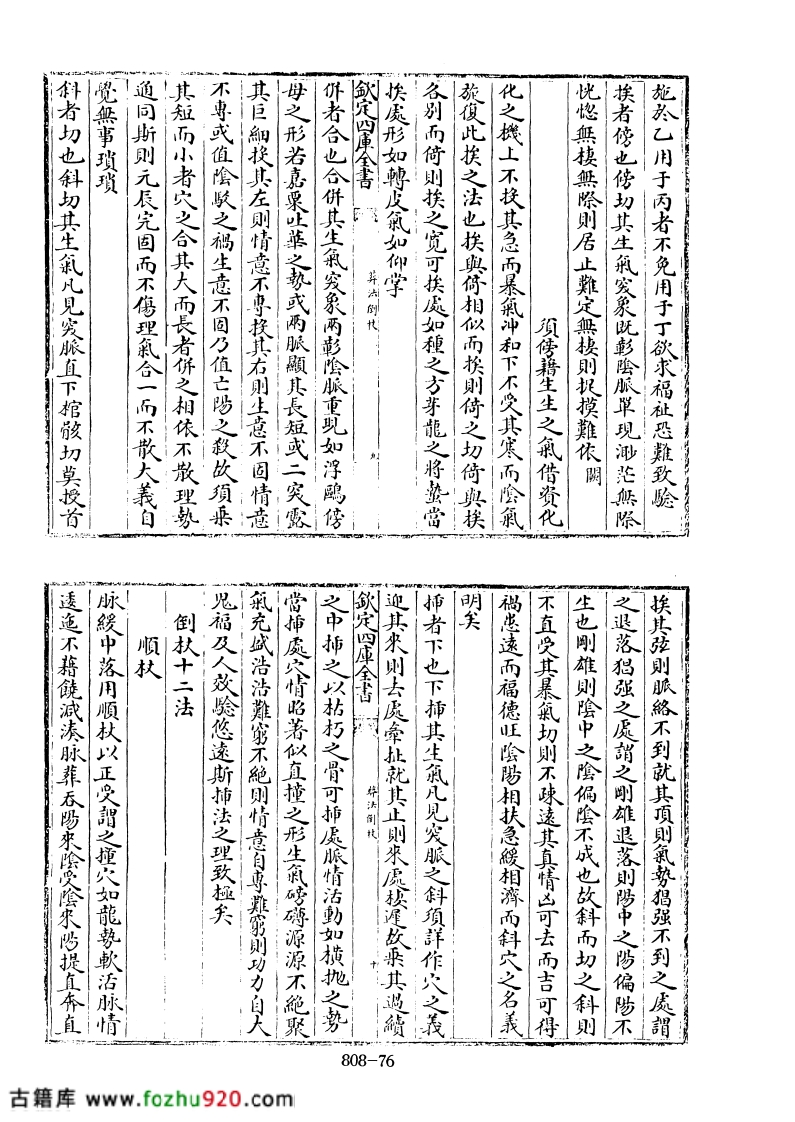 施於乙用于丙者不免用于丁欲求福祉恐難致驗
挨者傍也傍切其生氣突象既彰陰脈單現渺茫無際
恍惚無棲無際則居止難定無棲則捉摸難依 闕
須傍藉生生之氣借資化
化之機上不投其急而暴氣冲和下不受其寒而陰氣
旋復此挨之法也挨與倚相似而挨則倚之切倚與挨
各别而倚則挨之寛可挨處如種之方芽龍之將蟄當
挨處形如轉皮氣如仰掌
欽定四庫全書
葬法倒杖
九
併者合也合併其生氣突象兩彰陰脈重覩如浮鷗傍
母之形若嘉粟吐華之勢或兩脈顯其長短或二突露
其巨細投其左則情意不專投其右則生意不固情意
不專或值陰駁之禍生意不固乃值亡陽之殺故須乗
其短而小者穴之合其大而長者併之相依不散理勢
適同斯則元辰完固而不傷理氣合一而不散大義自
覺無事瑣瑣
斜者切也斜切其生氣凡見突脈直下棺骸切莫授首
挨其弦則脈絡不到就其頂則氣勢猖强不到之處謂
之退落猖强之處謂之剛雄退落則陽中之陽偏陽不
生也剛雄則陰中之陰偏陰不成也故斜而切之斜則
不直受其暴氣切則不疎遠其真情凶可去而吉可得
禍患遠而福德旺陰陽相扶急緩相濟而斜穴之名義
明矣
揷者下也下揷其生氣凡見突脈之斜須詳作穴之義
迎其來則去處牽扯就其止則來處棲遲故乗其過續
欽定四庫全書
葬法倒杖
十
之中揷之以枯朽之骨可揷處脈情活動如横抛之勢
當揷處穴情昭著似直撞之形生氣磅礡源源不絶聚
氣充盛浩浩難窮不絶則情意自專難窮則功力自大
鬼福及人效驗悠遠斯揷法之理致極矣
倒杖十二法
順杖
脈緩中落用順杖以正受謂之撞穴如龍勢軟活脈情
逶迤不藉饒減湊脈葬吞陽來陰受陰來陽提直奔直
808-76
古籍库 www.fozhu920.com